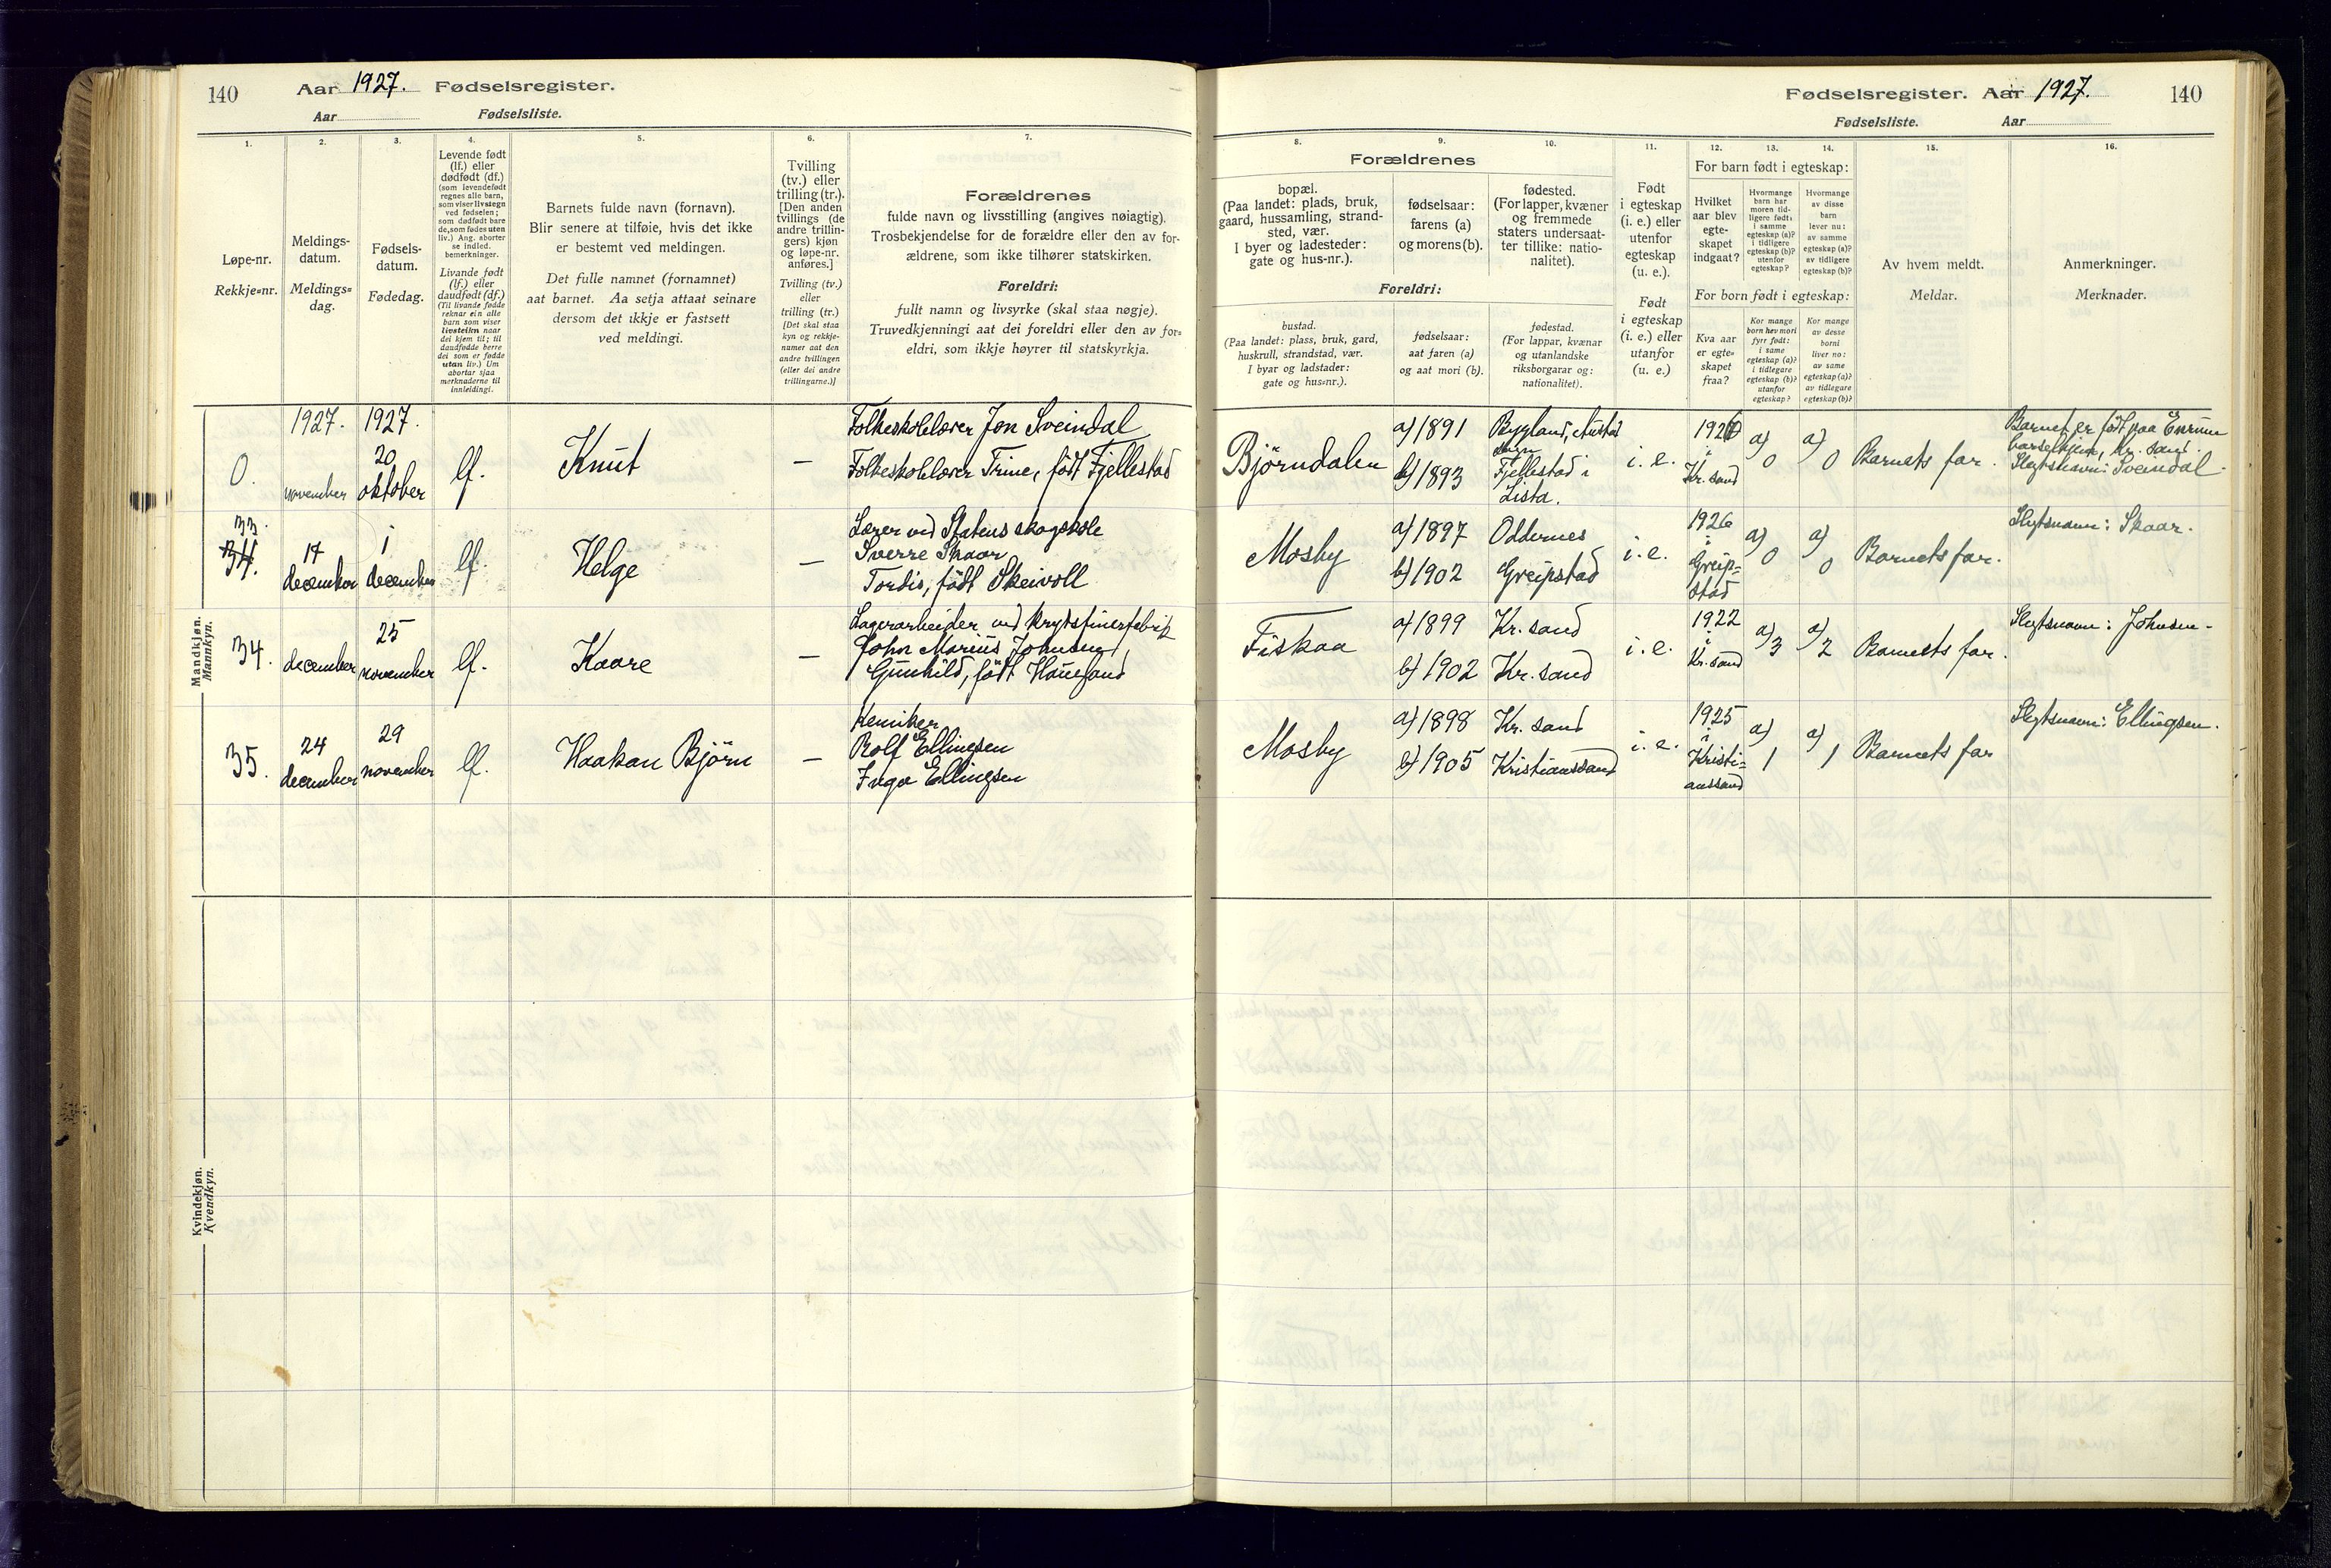 140 Aar 1927. Fødselsregister.
Aar Fødselsliste.
Fødselsregister. Aar 1927. 140
Fødselsliste. Aar
1. 2. 3. 4. 5. 6. 7.
Løpe-nr.
Rekkje=nr.
Meldings-
datum.
Meldings=
dag.
Fødsels-
datum.
Fødedag.
Levende født
(lf.) eller
dødfødt (df.)
(som levendefødt
regnes alle barn,
som viser livstegn
ved fødselen;
som dødfødt bare
de, som fødes uten
liv.) Ang. aborter
se indled.
bemerkninger.
Livande født
(lf.) eller
daudfødt (df.)
(Til livande fødde
reknar ein alle
barn som viser
livsteikn naar
dei kjem til; til
daudfødde berre
dei som er fødde
utan liv.) Um
abortar sjaa
merknaderne til
innleidingi.
Barnets fulde navn (fornavn).
Blir senere at tilføie, hvis det ikke
er bestemt ved meldingen.
Det fulle namnet (fornamnet)
aat barnet. Aa setja attaat seinare
dersom det ikkje er fastsett
ved meldingi.
Tvilling
(tv.) eller
trilling (tr.).
[Den anden
tvillings (de
andre trillin-
gers) kjøn
og løpe-nr.
anføres.]
Tvilling (tv.)
eller
trilling (tr.)
[Det skal staa
kyn og rekkje-
numer aat den
andre tvillingen
(eller dei andre
trillingarne.)]
Forældrenes
fulde navn og livsstilling (angives nøiagtig).
Trosbekjendelse for de forældre eller den av for-
ældrene, som ikke tilhører statskirken.
Foreldri:
fullt namn og livsyrke (skal staa nøgje).
Truvedkjenningi aat dei foreldri eller den av for=
eldri, som ikkje høyrer til statskyrkja.
8. 9. 10. 11. 12. 13. 14. 15. 16.
Forældrenes
bopæl.
(Paa landet: plads, bruk,
gaard, hussamling, strand-
sted, vær.
I byer og ladesteder:
gate og hus-nr.).
fødselsaar:
farens (a)
og morens (b).
fødested.
(For lapper, kvæner
og fremmede
staters undersaat-
ter tillike: natio-
nalitet).
Foreldri:
bustad.
(Paa landet: plass, bruk, gard,
huskrull, strandstad, vær.
I byar og ladstader:
gate og hus=nr.).
fødselsaar:
aat faren (a)
og aat mori (b).
fødestad.
(For lappar, kvænar
og utanlandske
riksborgarar og:
nationalitet).
Født
i egteskap
(i. e.) eller
utenfor
egteskap
(u. e.).
Født
i egteskap
(i. e.) eller
utanfor
(u. e.)
For barn født i egteskap:
Hvilket
aar blev
egte-
skapet
indgaat?
Hvormange
barn har
moren tid-
ligere født:
i samme
egteskap (a)?
i tidligere
egteskap (b)?
utenfor
egteskap?
Hvormange
av disse
barn
lever nu:
av samme
egteskap (a)?
av tidligere
egteskap (b)?
For born født i egteskap:
Kva aar
er egte=
skapet
fraa?
Kor mange
born hev mori
fyrr født:
i same
egteskap (a)?
i tidlegare
egteskap (b)?
utanfor
egteskap?
Kor mange
av desse
borni
liver no:
av same
egteskap (a)?
av tidlegare
egteskap (b)?
Av hvem meldt.
Meldar.
Anmerkninger.
Merknader.
Mandkjøn.
Mannkyn.
0. 1927. november 1927. 20 oktober lf. Knut —
Folkeskolelærer Jon Sveindal
Folkeskolelærer Trine, födt Fjellestad
Björndalen a) 1891 Bygland,
b) 1893 Fjellestad i
Lista.
i. e. 1926 i Kr. sand a) 0 a) 0 Barnets far.
Barnet er födt paa
Kr. sand.
Slegtsnavn: Sveindal.
33. 34. 17 december 1 december lf. Helge —
Lærer ved Statens skogskole
Sverre Skaar
Tordis, födt Skeivoll
Mosby a) 1897 Oddernes
b) 1902 Greipstad
i. e. 1926 i Greip=
stad a) 0 a) 0 Barnets far.
Slegtsnavn: Skaar.
34. december 25 november lf. Kaare —
Lagerarbeider ved krydsfinerfabrik
John Marius Johnsen,
Gunhild, födt Haugsand
Fiskaa a) 1899 Kr. sand
b) 1902 Kr. sand
i. e. 1922 i Kr. sand a) 3 a) 2 Barnets far.
Slegtsnavn: Johnsen.
35. 24 december 29 november lf. Haakan Björn —
Kemiker
Rolf Ellingsen
Inga Ellingsen
Mosby a) 1898 Kr. sand
b) 1905 Kristianssand
i. e. 1925 i Kristi=
anssand a) 1 a) 1 Barnets far
Slegtsnavn: Ellingsen.
Kvindekjøn.
Kvendkyn.